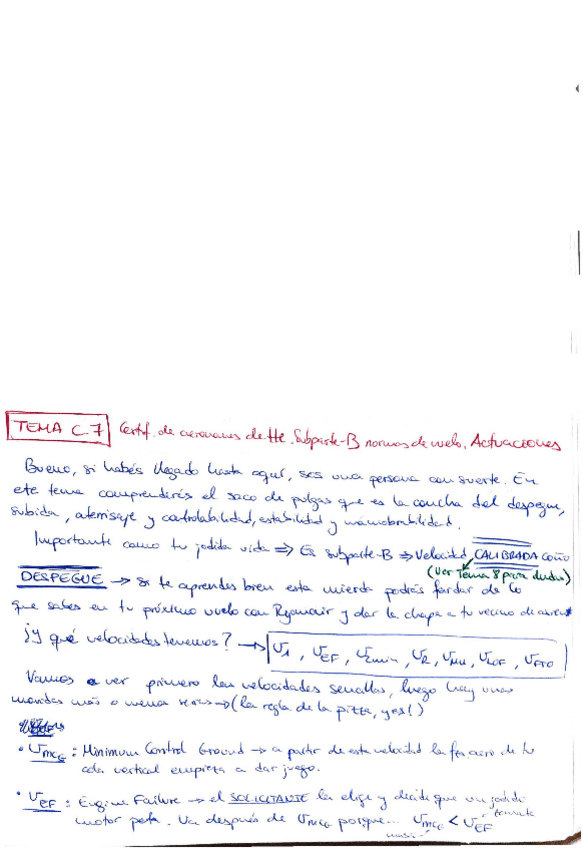 TEMA C.7 Certif. de aeronaves de tte. Subparte-B normas de vuelo. Actuaciones
Bueno, si habés llegado hasta aquí, sos una persona con suerte. En
ete tema comprenderás el saco de pulgas que es la concha del despegue,
subida, aterrisaje y controlabilidad, estabilidad y maniobrabilidad.
Importante como tu jodida vida => Es subparte-B => Velocidad CALIBRADA COÑO
(Ver Tema 8 para dudas)
DESPEGUE → si te aprendes bien esta mierda podrás fardar de lo
que sabes en tu próximo vuelo con Ryanair y dar la chapa a tu vecino de
¿Y qué velocidades tenemos? → V1, VEF, V2min, VR, VMU, VLOF, VFTO
Vamos a ver primero las velocidades sencillas, luego hay unas
movidas más o menos → (la regla de la pizza, yes!)
• VMCG : Minimum Control Ground → a partir de esta velocidad la fra aero de tu
cola vertical empieza a dar juego.
• VEF : Engine Failure → el SOLICITANTE la elige y decide que un jodido
motor peta. Va después de VMCG porque... VMCG < VEF